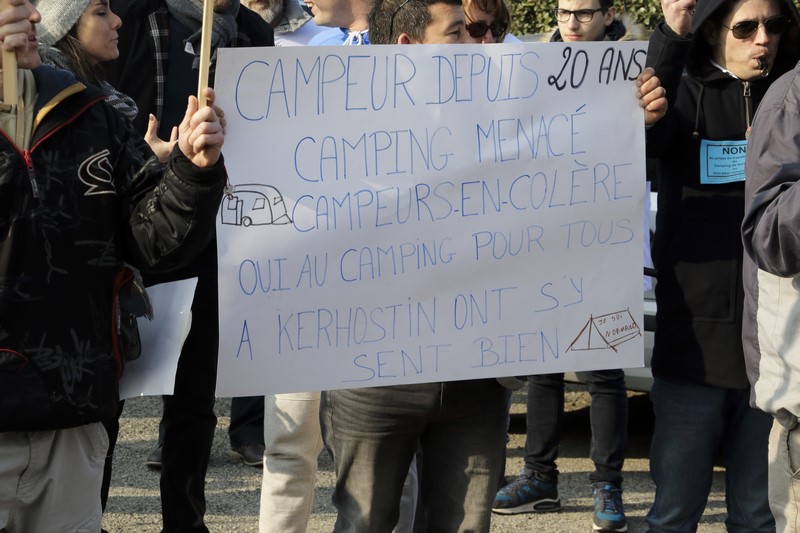 CAMPEUR DEPUIS 20 ANS
CAMPING MENACÉ
CAMPEURS-EN-COLÈRE
OUI AU CAMPING POUR TOUS
A KERHOSTIN ONT S'Y
SENT BIEN
JE SUI
NORMALE
NON